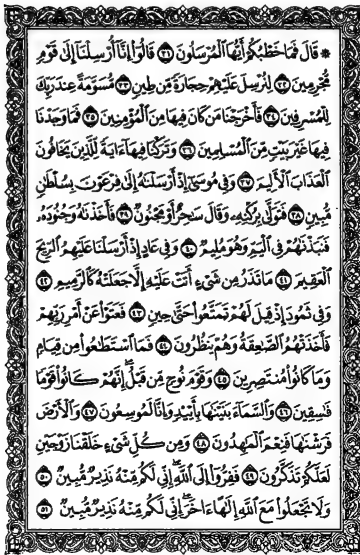 ۞ قَالَ فَمَا خَطْبُكُمْ أَيُّهَا ٱلْمُرْسَلُونَ ٣١ قَالُوٓا۟ إِنَّآ أُرْسِلْنَآ إِلَىٰ قَوْمٍ
مُّجْرِمِينَ ٣٢ لِنُرْسِلَ عَلَيْهِمْ حِجَارَةً مِّن طِينٍ ٣٣ مُّسَوَّمَةً عِندَ رَبِّكَ
لِلْمُسْرِفِينَ ٣٤ فَأَخْرَجْنَا مَن كَانَ فِيهَا مِنَ ٱلْمُؤْمِنِينَ ٣٥ فَمَا وَجَدْنَا
فِيهَا غَيْرَ بَيْتٍ مِّنَ ٱلْمُسْلِمِينَ ٣٦ وَتَرَكْنَا فِيهَآ ءَايَةً لِّلَّذِينَ يَخَافُونَ
ٱلْعَذَابَ ٱلْأَلِيمَ ٣٧ وَفِى مُوسَىٰٓ إِذْ أَرْسَلْنَٰهُ إِلَىٰ فِرْعَوْنَ بِسُلْطَٰنٍ
مُّبِينٍ ٣٨ فَتَوَلَّىٰ بِرُكْنِهِۦ وَقَالَ سَٰحِرٌ أَوْ مَجْنُونٌ ٣٩ فَأَخَذْنَٰهُ وَجُنُودَهُۥ
فَنَبَذْنَٰهُمْ فِى ٱلْيَمِّ وَهُوَ مُلِيمٌ ٤٠ وَفِى عَادٍ إِذْ أَرْسَلْنَا عَلَيْهِمُ ٱلرِّيحَ
ٱلْعَقِيمَ ٤١ مَا تَذَرُ مِن شَىْءٍ أَتَتْ عَلَيْهِ إِلَّا جَعَلَتْهُ كَٱلرَّمِيمِ ٤٢
وَفِى ثَمُودَ إِذْ قِيلَ لَهُمْ تَمَتَّعُوا۟ حَتَّىٰ حِينٍ ٤٣ فَعَتَوْا۟ عَنْ أَمْرِ رَبِّهِمْ
فَأَخَذَتْهُمُ ٱلصَّٰعِقَةُ وَهُمْ يَنظُرُونَ ٤٤ فَمَا ٱسْتَطَٰعُوا۟ مِن قِيَامٍ
وَمَا كَانُوا۟ مُنتَصِرِينَ ٤٥ وَقَوْمَ نُوحٍ مِّن قَبْلُ إِنَّهُمْ كَانُوا۟ قَوْمًا
فَٰسِقِينَ ٤٦ وَٱلسَّمَآءَ بَنَيْنَٰهَا بِأَيْي۟دٍ وَإِنَّا لَمُوسِعُونَ ٤٧ وَٱلْأَرْضَ
فَرَشْنَٰهَا فَنِعْمَ ٱلْمَٰهِدُونَ ٤٨ وَمِن كُلِّ شَىْءٍ خَلَقْنَا زَوْجَيْنِ
لَعَلَّكُمْ تَذَكَّرُونَ ٤٩ فَفِرُّوٓا۟ إِلَى ٱللَّهِ إِنِّى لَكُم مِّنْهُ نَذِيرٌ مُّبِينٌ ٥٠
وَلَا تَجْعَلُوا۟ مَعَ ٱللَّهِ إِلَٰهًا ءَاخَرَ إِنِّى لَكُم مِّنْهُ نَذِيرٌ مُّبِينٌ ٥١